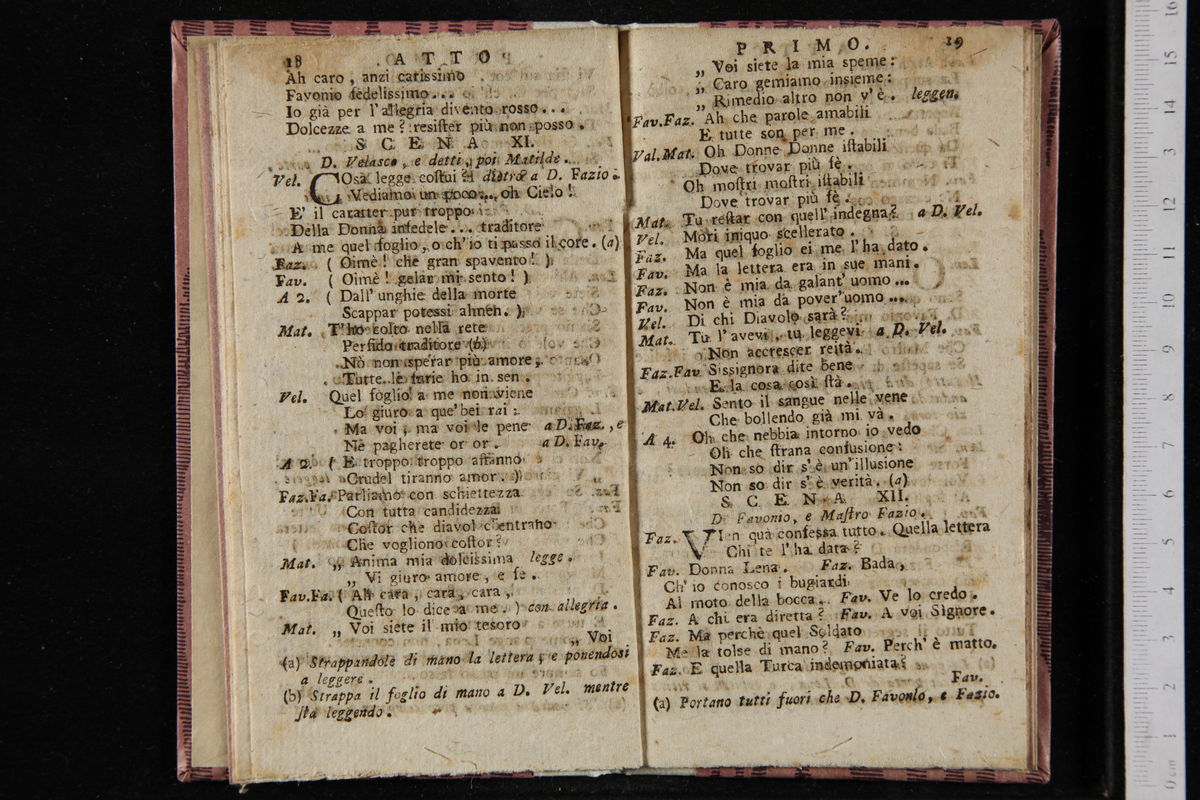 18 ATTO
Ah caro, anzi carissimo
Favonio fedelissimo...
Io già per l'allegria divento rosso...
Dolcezze a me? resister più non posso.
SCENA XI.
D. Velasco, e detti, poi Matilde.
Vel. COsa legge costui? dietro a D. Fazio.
Vediamo un poco... oh Cielo!
E' il caratter pur troppo
Della Donna infedele... traditore
A me quel foglio, o ch'io ti passo il core. (a)
Faz. ( Oimè! che gran spavento! )
Fav. ( Oimè! gelar mi sento! )
A 2. ( Dall'unghie della morte
Scappar potessi almen. )
Mat. T'ho colto nella rete
Perfido traditore (b)
Nò non sperar più amore,
Tutte le furie ho in sen.
Vel. Quel foglio a me non viene
Lo giuro a que' bei rai:
Ma voi, ma voi le pene a D. Faz., e
Nè pagherete or or. a D. Fav.
A 2. ( E troppo troppo affanno
Crudel tiranno amor. )
Faz.Fa. Parliamo con schiettezza
Con tutta candidezza
Costor che diavol c'entrano
Che vogliono costor?
Mat. „ Anima mia dolcissima legge.
„ Vi giuro amore, e fe.
Fav.Fa. ( Ah cara, cara, cara,
Questo lo dice a me. ) con allegria.
Mat. „ Voi siete il mio tesoro
„ Voi
(a) Strappandole di mano la lettera, e ponendosi
a leggere.
(b) Strappa il foglio di mano a D. Vel. mentre
sta leggendo.
PRIMO. 19
„ Voi siete la mia speme:
„ Caro gemiamo insieme:
„ Rimedio altro non v'è. leggen.
Fav.Faz. Ah che parole amabili
E tutte son per me.
Val.Mat. Oh Donne Donne istabili
Dove trovar più fè.
Oh mostri mostri istabili
Dove trovar più fè.
Mat. Tu restar con quell'indegna? a D. Vel.
Vel. Mori iniquo scellerato.
Faz. Ma quel foglio ei me l'ha dato.
Fav. Ma la lettera era in sue mani.
Faz. Non è mia da galant'uomo...
Fav. Non è mia da pover'uomo...
Vel. Di chi Diavolo sarà?
Mat. Tu l'avevi, tu leggevi a D. Vel.
Non accrescer reità.
Faz.Fav Sissignora dite bene
E la cosa così stà.
Mat.Vel. Sento il sangue nelle vene
Che bollendo già mi và.
A 4. Oh che nebbia intorno io vedo
Oh che strana confusione:
Non so dir s'è un'illusione
Non so dir s'è verità. (a)
SCENA XII.
D. Favonio, e Mastro Fazio.
Faz. VIen quà confessa tutto. Quella lettera
Chi te l'ha data?
Fav. Donna Lena. Faz. Bada,
Ch'io conosco i bugiardi
Al moto della bocca. Fav. Ve lo credo.
Faz. A chi era diretta? Fav. A voi Signore.
Faz. Ma perchè quel Soldato
Me la tolse di mano? Fav. Perch'è matto.
Faz. E quella Turca indemoniata?
Fav.
(a) Portano tutti fuori che D. Favonio, e Fazio.